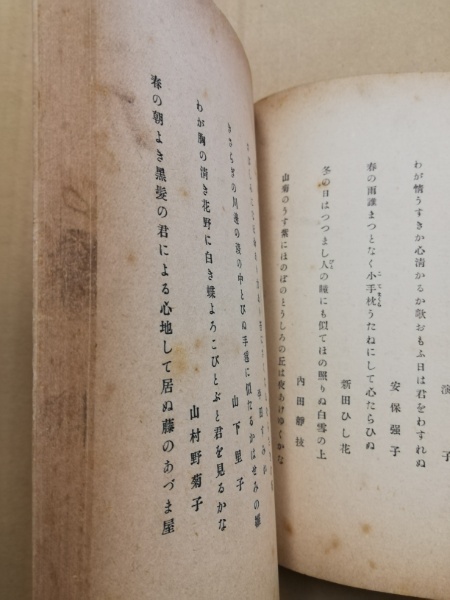 演子
わが情うすきか心清かるか歌おもふ日は君をわすれぬ
安保强子
春の雨誰まつとなく小手枕うたねにして心たらひぬ
新田ひし花
冬の日はつつまし人の瞳にも似てほの照りぬ白雪の上
内田靜枝
山菊のうす紫にほのぼのとうしろの丘は夜あけゆくかな
きさらぎの川邊の湶の中とびぬ手毬に似たるかはせみの雛
山下里子
わが胸の淸き花野に白き蝶よろこびとぶと君を見るかな
山村野菊子
春の朝よき黑髮の君による心地して居ぬ藤のあづま屋